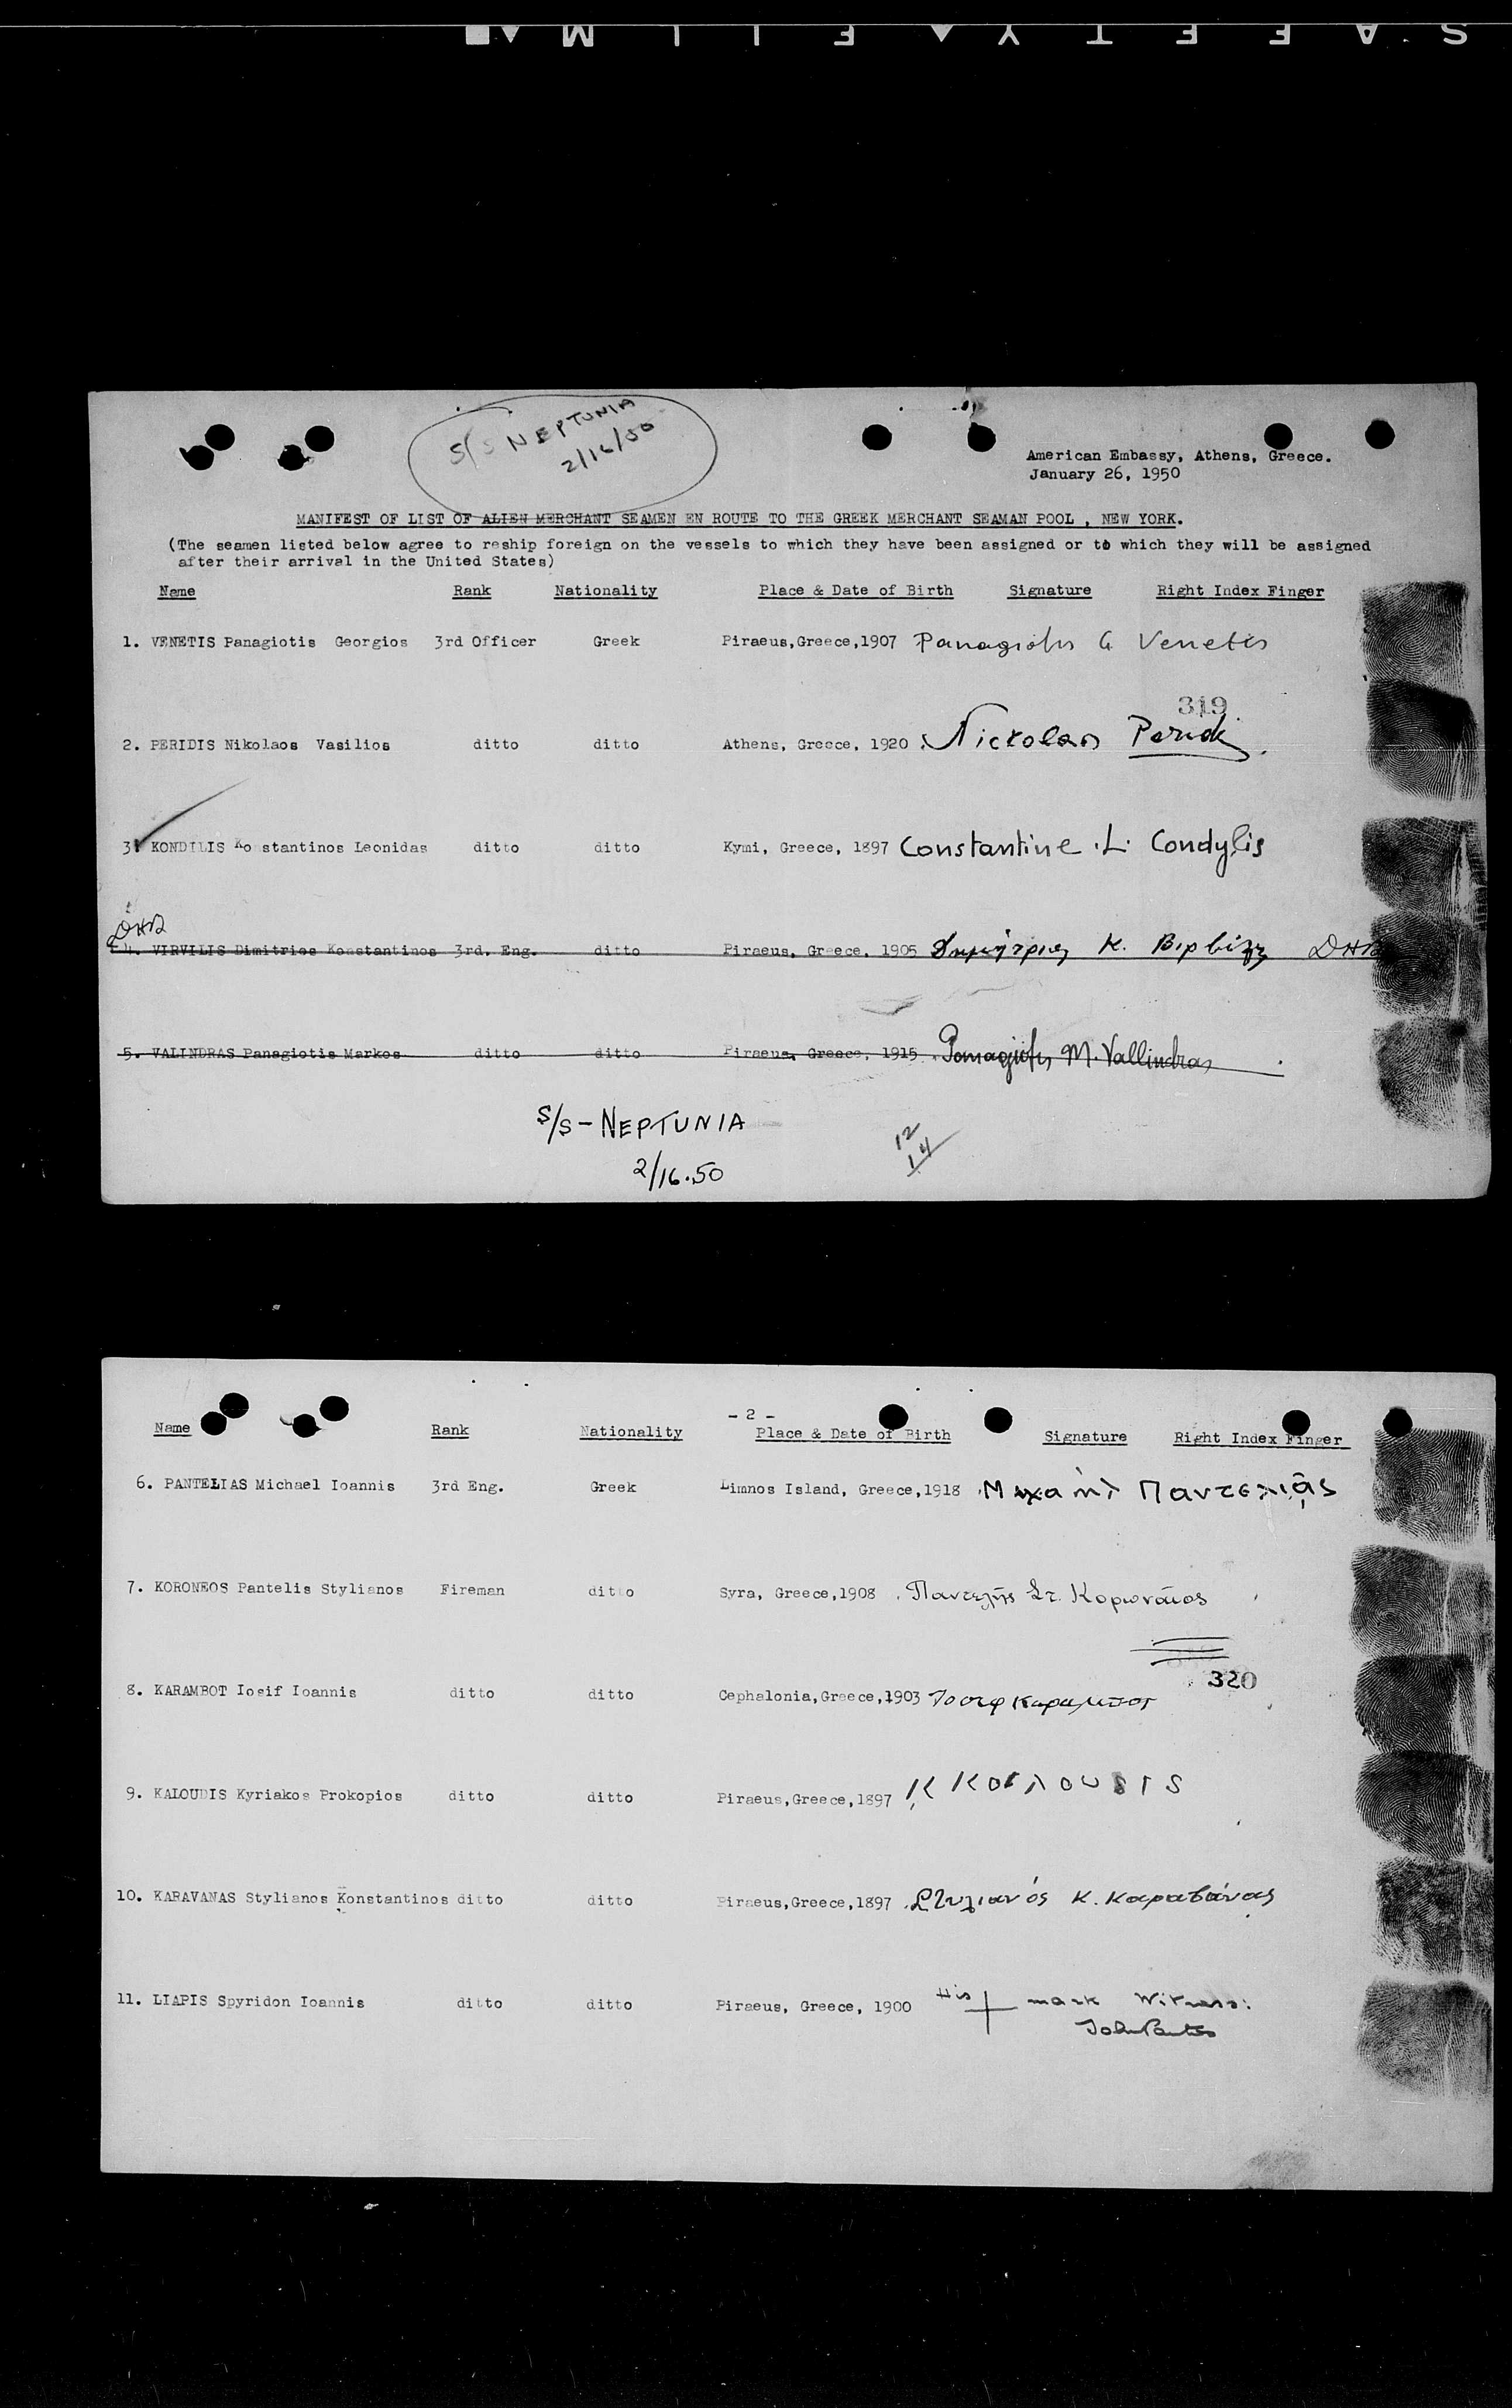 SAFETY▲FILM▲■
S/S NEPTUNIA
2/16/50
American Embassy, Athens, Greece.
January 26, 1950
MANIFEST OF LIST OF ALIEN MERCHANT SEAMEN EN ROUTE TO THE GREEK MERCHANT SEAMAN POOL , NEW YORK.
(The seamen listed below agree to reship foreign on the vessels to which they have been assigned or to which they will be assigned
after their arrival in the United States)
Name Rank Nationality Place & Date of Birth Signature Right Index Finger
1. VENETIS Panagiotis Georgios 3rd Officer Greek Piraeus,Greece,1907 Panagiotis G Venetis
319
2. PERIDIS Nikolaos Vasilios ditto ditto Athens, Greece, 1920 Nickolas
3. KONDILIS Konstantinos Leonidas ditto ditto Kymi, Greece, 1897 Constantine .L. Condylis
DHB
4. VIRVILIS Dimitrios Konstantinos 3rd. Eng. ditto Piraeus, Greece, 1905 Δημήτριος Κ. Βιρβίλης DHB
5. VALINDRAS Panagiotis Markos ditto ditto Piraeus, Greece, 1915 Panagiotis M. Vallindras
S/S - NEPTUNIA
2/16.50
12
14
- 2 -
Name Rank Nationality Place & Date of Birth Signature Right Index Finger
6. PANTELIAS Michael Ioannis 3rd Eng. Greek Limnos Island, Greece,1918 Μιχαήλ Παντελιᾶς
7. KORONEOS Pantelis Stylianos Fireman ditto Syra, Greece,1908 Παντελῆς Στ. Κορωναῖος
320
8. KARAMBOT Iosif Ioannis ditto ditto Cephalonia,Greece,1903 Ιοσιφ Καραμποτ
9. KALOUDIS Kyriakos Prokopios ditto ditto Piraeus,Greece,1897 Κ Καλουδις
10. KARAVANAS Stylianos Konstantinos ditto ditto Piraeus,Greece,1897 Στυλιανός Κ. Καραβάνας
11. LIAPIS Spyridon Ioannis ditto ditto Piraeus, Greece, 1900 His + mark Witness:
John